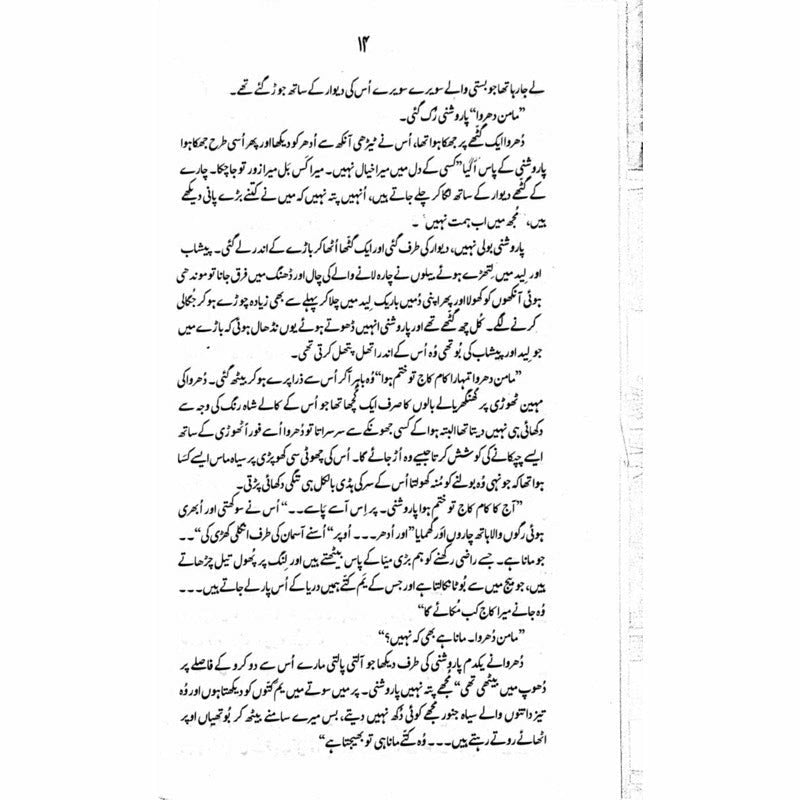 ۱۴
لے جا رہا تھا جو بستی والے سویرے سویرے اُس کی دیوار کے ساتھ جوڑ گئے تھے۔
”مامن دھروا“ پاروشنی رُک گئی۔
دُھروا ایک گٹھے پر جھکا ہوا تھا، اُس نے ٹیڑھی آنکھ سے اُدھر کو دیکھا اور پھر اُسی طرح جھکا ہوا
پاروشنی کے پاس آ گیا ”کسی کے دل میں میرا خیال نہیں۔ میرا کَس بَل میرا زور تو جا چکا۔ چارے
کے گٹھے دیوار کے ساتھ لگا کر چلے جاتے ہیں، اُنہیں پتہ نہیں کہ میں نے کتنے بڑے پانی دیکھے
ہیں، مُجھ میں اب ہمت نہیں“۔
پاروشنی بولی نہیں، دیوار کی طرف گئی اور ایک گٹھا اُٹھا کر باڑے کے اندر لے گئی۔ پیشاب
اور لید میں لتھڑے ہوئے بیلوں نے چارہ لانے والے کی چال اور ڈھنگ میں فرق جانا تو موندھی
ہوئی آنکھوں کو کھولا اور پھر اپنی دُمیں باریک لید میں چلا کر پہلے سے بھی زیادہ چوڑے ہو کر جُگالی
کرنے لگے۔ کُل چھ گٹھے تھے اور پاروشنی انہیں ڈھوتے ہوئے یوں نڈھال ہوئی کہ باڑے میں
جو لید اور پیشاب کی بُو تھی وُہ اُس کے اندر اتھل پتھل کرتی تھی۔
”مامن دھروا تمہارا کام کاج تو ختم ہوا“ وُہ باہر آ کر اُس سے ذرا پرے ہو کر بیٹھ گئی۔ دُھروا کی
مہین ٹھوڑی پر گھنگھریالے بالوں کا صرف ایک گُچھا تھا جو اُس کے کالے شاہ رنگ کی وجہ سے
دکھائی ہی نہیں دیتا تھا البتہ ہوا کے کسی جھونکے سے سرسراتا تو دُھروا اُسے فوراً ٹھوڑی کے ساتھ
ایسے چپکانے کی کوشش کرتا جیسے وہ اُڑ جائے گا۔ اُس کی چھوٹی سی کھوپڑی پر سیاہ ماس ایسے کَسا
ہوا تھا کہ جونہی وُہ بولنے کو مُنہ کھولتا اُس کے سر کی ہڈی بالکل ہی ننگی دکھائی پڑتی۔
”آج کا کام کاج تو ختم ہوا پاروشنی۔ پر اِس آسے پاسے۔۔“ اُس نے سوکھتی اور اُبھری
ہوئی رگوں والا ہاتھ چاروں اَور گھمایا ”اور اُدھر۔۔۔ اُوپر“ اُسنے آسمان کی طرف انگلی کھڑی کی“۔۔
جو مانا ہے۔ جسے راضی رکھنے کو ہم بڑی میّا کے پاس بیٹھتے ہیں اور لنگ پر پُھول تیل چڑھاتے
ہیں، جو بیج میں سے بُوٹا نکالتا ہے اور جس کے یَم کتّے ہمیں دریا کے اُس پار لے جاتے ہیں۔۔۔
وُہ جانے میرا کاج کب مُکائے گا“
”مامن دُھروا۔ مانا ہے بھی کہ نہیں؟“
دُھروا نے یکدم پاروشنی کی طرف دیکھا جو آلتی پالتی مارے اُس سے دو کرو کے فاصلے پر
دُھوپ میں بیٹھی تھی ”مُجھے پتہ نہیں پاروشنی۔ پر میں سوتے میں یم کُتّوں کو دیکھتا ہوں اور وُہ
تیز دانتوں والے سیاہ جنور مجھے کوئی دُکھ نہیں دیتے، بس میرے سامنے بیٹھ کر بُوتھیاں اوپر
اٹھائے روتے رہتے ہیں۔۔۔ وُہ کتّے مانا ہی تو بھیجتا ہے“